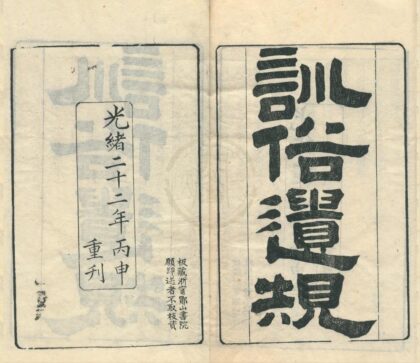 訓俗遺規
光緒二十二年丙申
重刊
板藏浙甯鄞山書院
願印送者不取板資